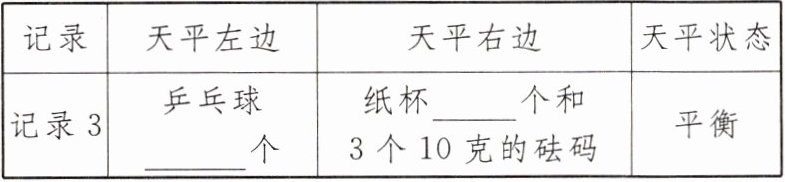 记录 天平左边 天平右边 天平状态
记录3 乒乓球______个 纸杯_____个和3个10克的砝码 平衡